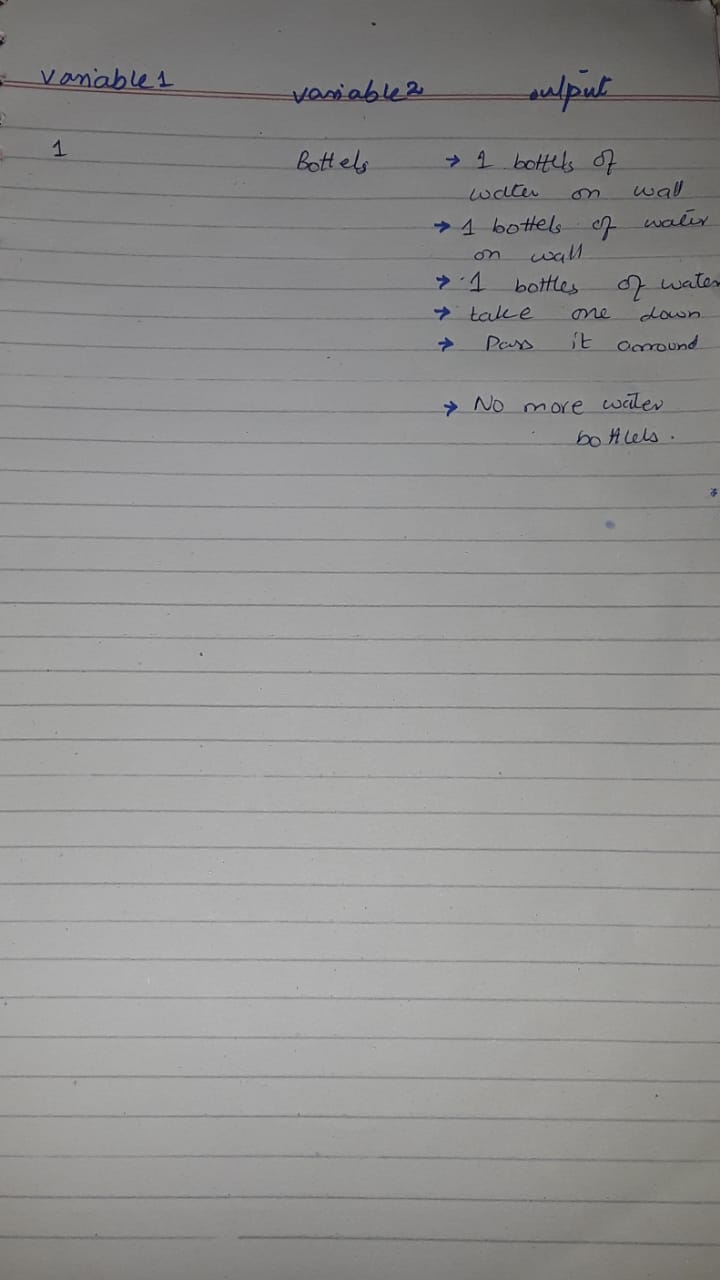 variable1 variable2 output
1 Bottels → 1 bottels of
water on wall
→ 1 bottels of water
on wall
→ 1 bottles of water
→ take one down
→ Pass it arround
→ No more water
bottels.